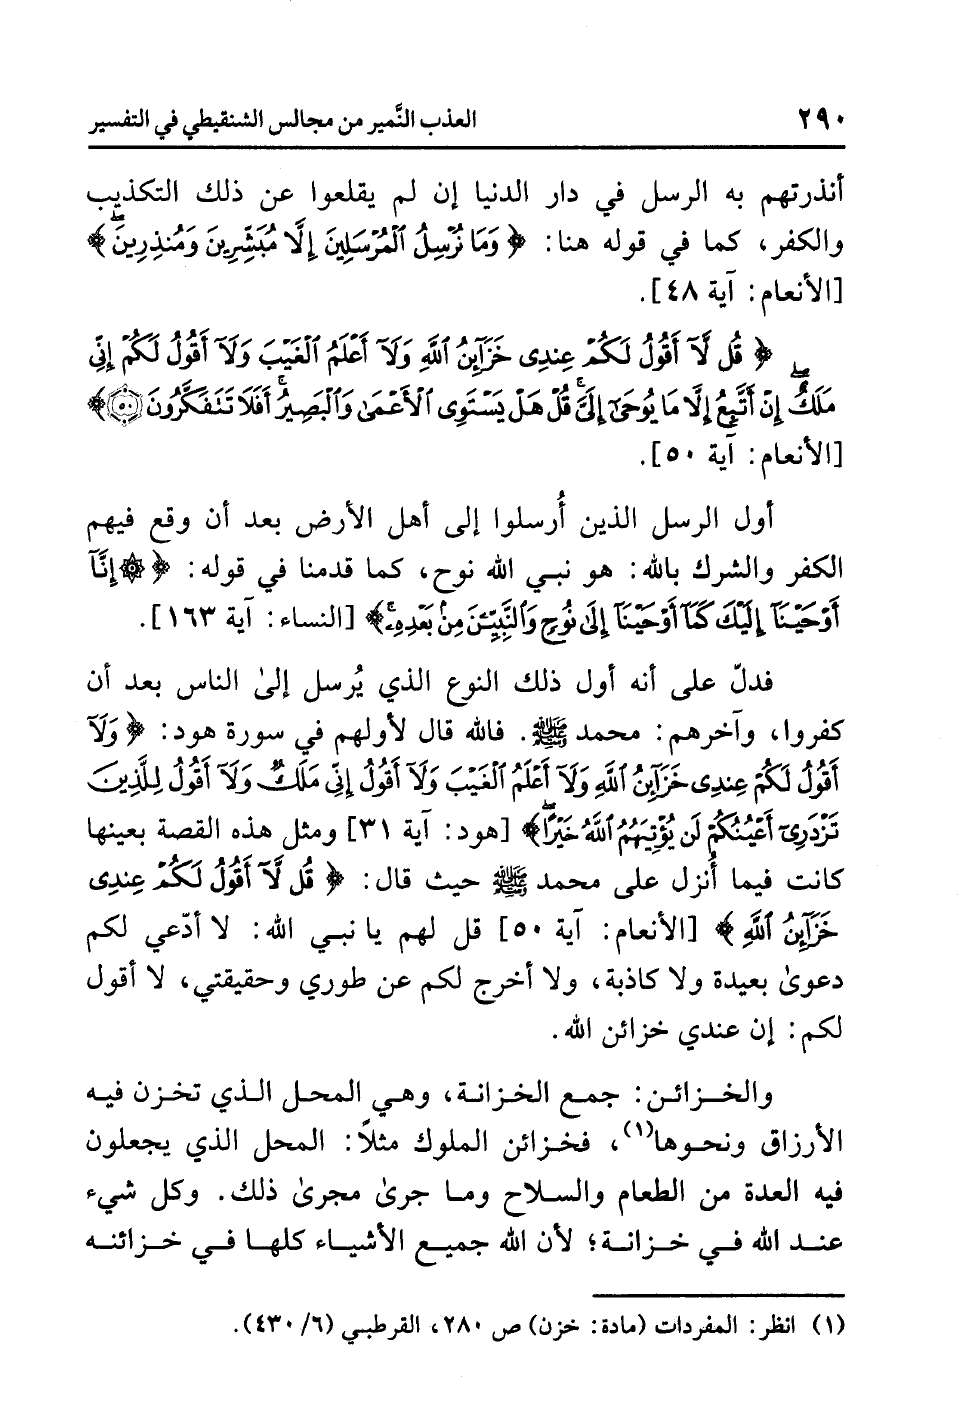 ٢٩٠ العذب النَّمير من مجالس الشنقيطي في التفسير
أنذرتهم به الرسل في دار الدنيا إن لم يقلعوا عن ذلك التكذيب
والكفر، كما في قوله هنا: ﴿ وَمَا نُرْسِلُ الْمُرْسَلِينَ إِلَّا مُبَشِّرِينَ وَمُنذِرِينَ ۖ ﴾
[الأنعام: آية ٤٨].
﴿ قُل لَّا أَقُولُ لَكُمْ عِندِى خَزَآئِنُ ٱللَّهِ وَلَآ أَعْلَمُ ٱلْغَيْبَ وَلَآ أَقُولُ لَكُمْ إِنِّى
مَلَكٌ ۖ إِنْ أَتَّبِعُ إِلَّا مَا يُوحَىٰٓ إِلَىَّ ۚ قُلْ هَلْ يَسْتَوِى ٱلْأَعْمَىٰ وَٱلْبَصِيرُ ۚ أَفَلَا تَتَفَكَّرُونَ ۝٥٠ ﴾
[الأنعام: آية ٥٠].
أول الرسل الذين أُرسلوا إلى أهل الأرض بعد أن وقع فيهم
الكفر والشرك بالله: هو نبي الله نوح، كما قدمنا في قوله: ﴿ ۞ إِنَّآ
أَوْحَيْنَآ إِلَيْكَ كَمَآ أَوْحَيْنَآ إِلَىٰ نُوحٍ وَٱلنَّبِيِّـۧنَ مِنۢ بَعْدِهِۦ ۚ ﴾ [النساء: آية ١٦٣].
فدلّ على أنه أول ذلك النوع الذي يُرسل إلىٰ الناس بعد أن
كفروا، وآخرهم: محمد ﷺ. فالله قال لأولهم في سورة هود: ﴿ وَلَآ
أَقُولُ لَكُمْ عِندِى خَزَآئِنُ ٱللَّهِ وَلَآ أَعْلَمُ ٱلْغَيْبَ وَلَآ أَقُولُ إِنِّى مَلَكٌ وَلَآ أَقُولُ لِلَّذِينَ
تَزْدَرِىٓ أَعْيُنُكُمْ لَن يُؤْتِيَهُمُ ٱللَّهُ خَيْرًا ۖ ﴾ [هود: آية ٣١] ومثل هذه القصة بعينها
كانت فيما أُنزل على محمد ﷺ حيث قال: ﴿ قُل لَّآ أَقُولُ لَكُمْ عِندِى
خَزَآئِنُ ٱللَّهِ ﴾ [الأنعام: آية ٥٠] قل لهم يا نبي الله: لا أدّعي لكم
دعوىٰ بعيدة ولا كاذبة، ولا أخرج لكم عن طوري وحقيقتي، لا أقول
لكم: إن عندي خزائن الله.
والخزائن: جمع الخزانة، وهي المحل الذي تخزن فيه
الأرزاق ونحوها(١)، فخزائن الملوك مثلاً: المحل الذي يجعلون
فيه العدة من الطعام والسلاح وما جرىٰ مجرىٰ ذلك. وكل شيء
عند الله في خزانة؛ لأن الله جميع الأشياء كلها في خزائنه
(١) انظر: المفردات (مادة: خزن) ص ٢٨٠، القرطبي (٦/ ٤٣٠).